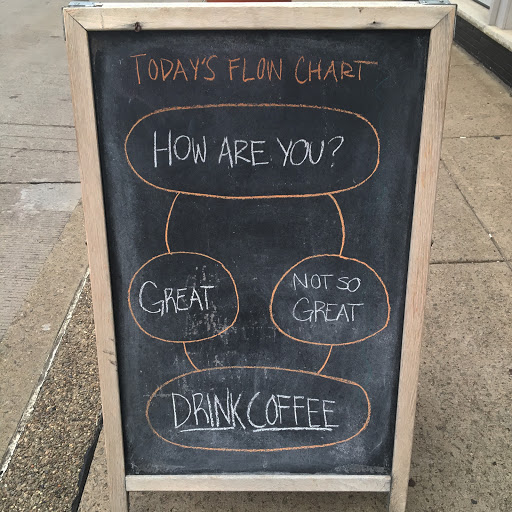 TODAY'S FLOW CHART
HOW ARE YOU?
GREAT
NOT SO
GREAT
DRINK COFFEE